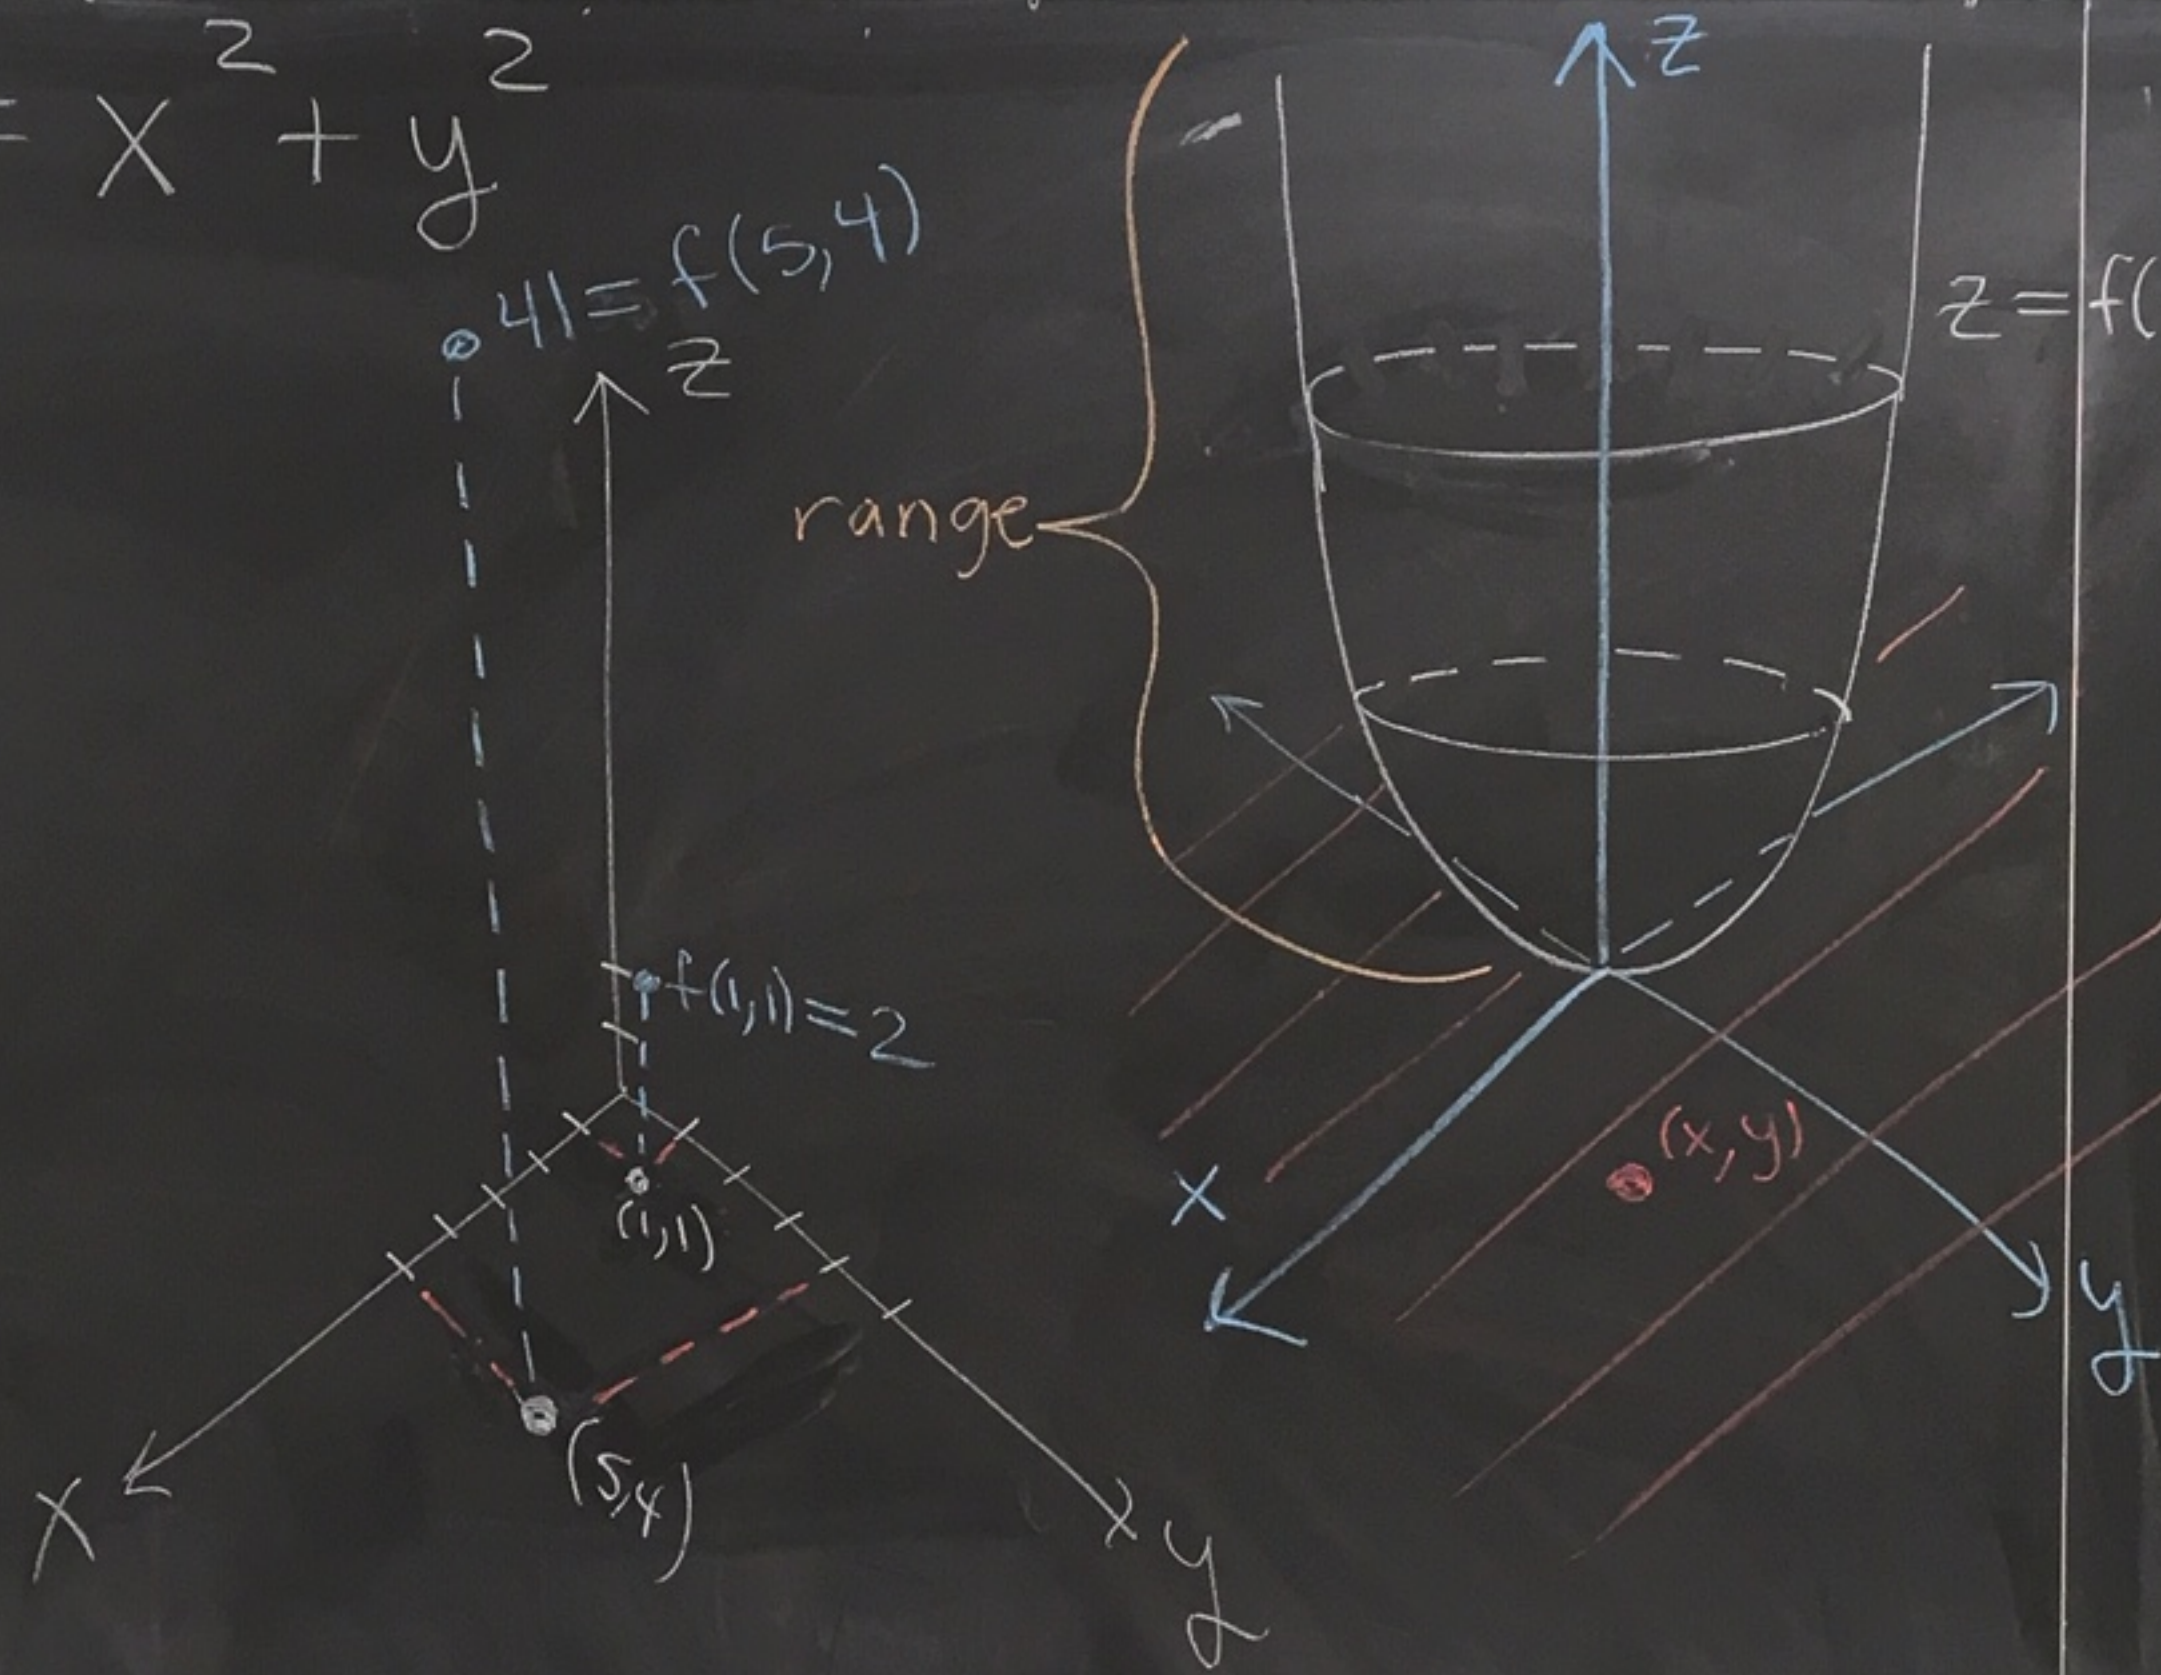 = x² + y²
41 = f(5,4)
z
f(1,1) = 2
(1,1)
(5,4)
x
y
range
z
z = f(
(x,y)
x
y